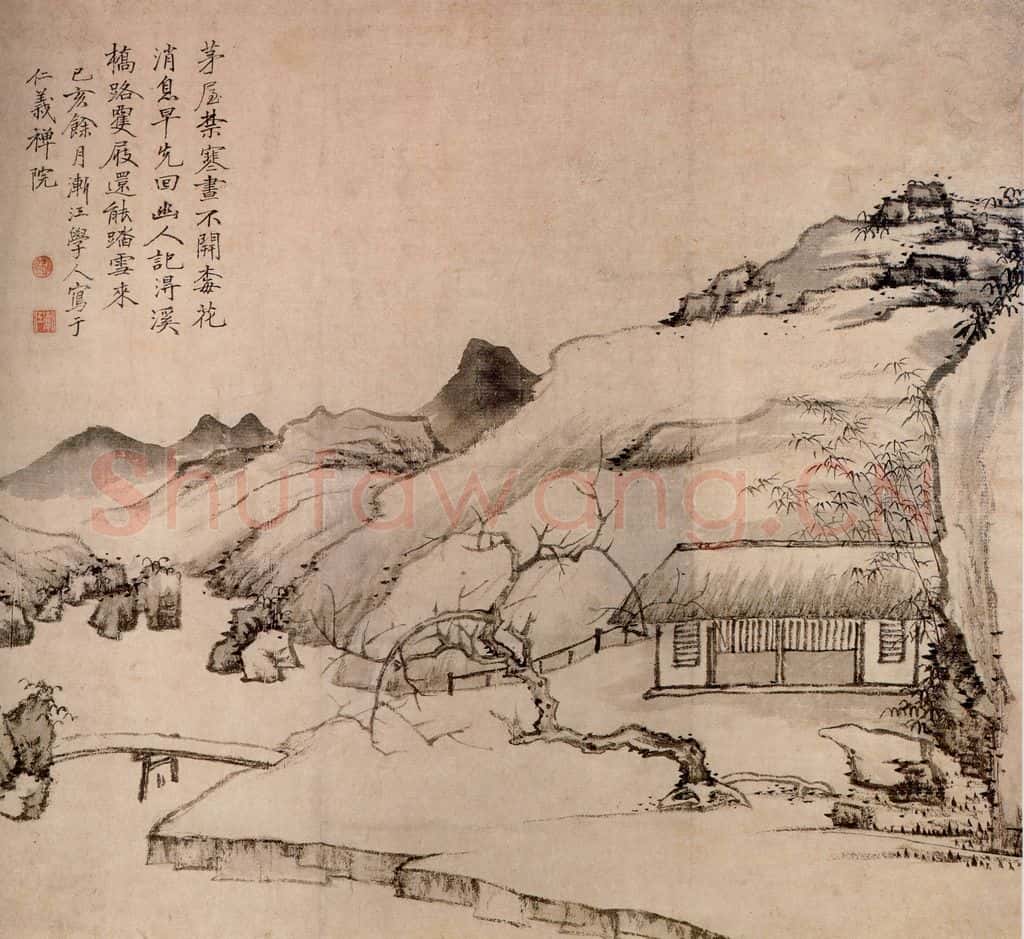 茅屋禁寒晝不開梅花
消息早先回幽人記得溪
橋路雙屐還能踏雪來
己亥餘月漸江學人寫于
仁義禪院
Shufawang.CN